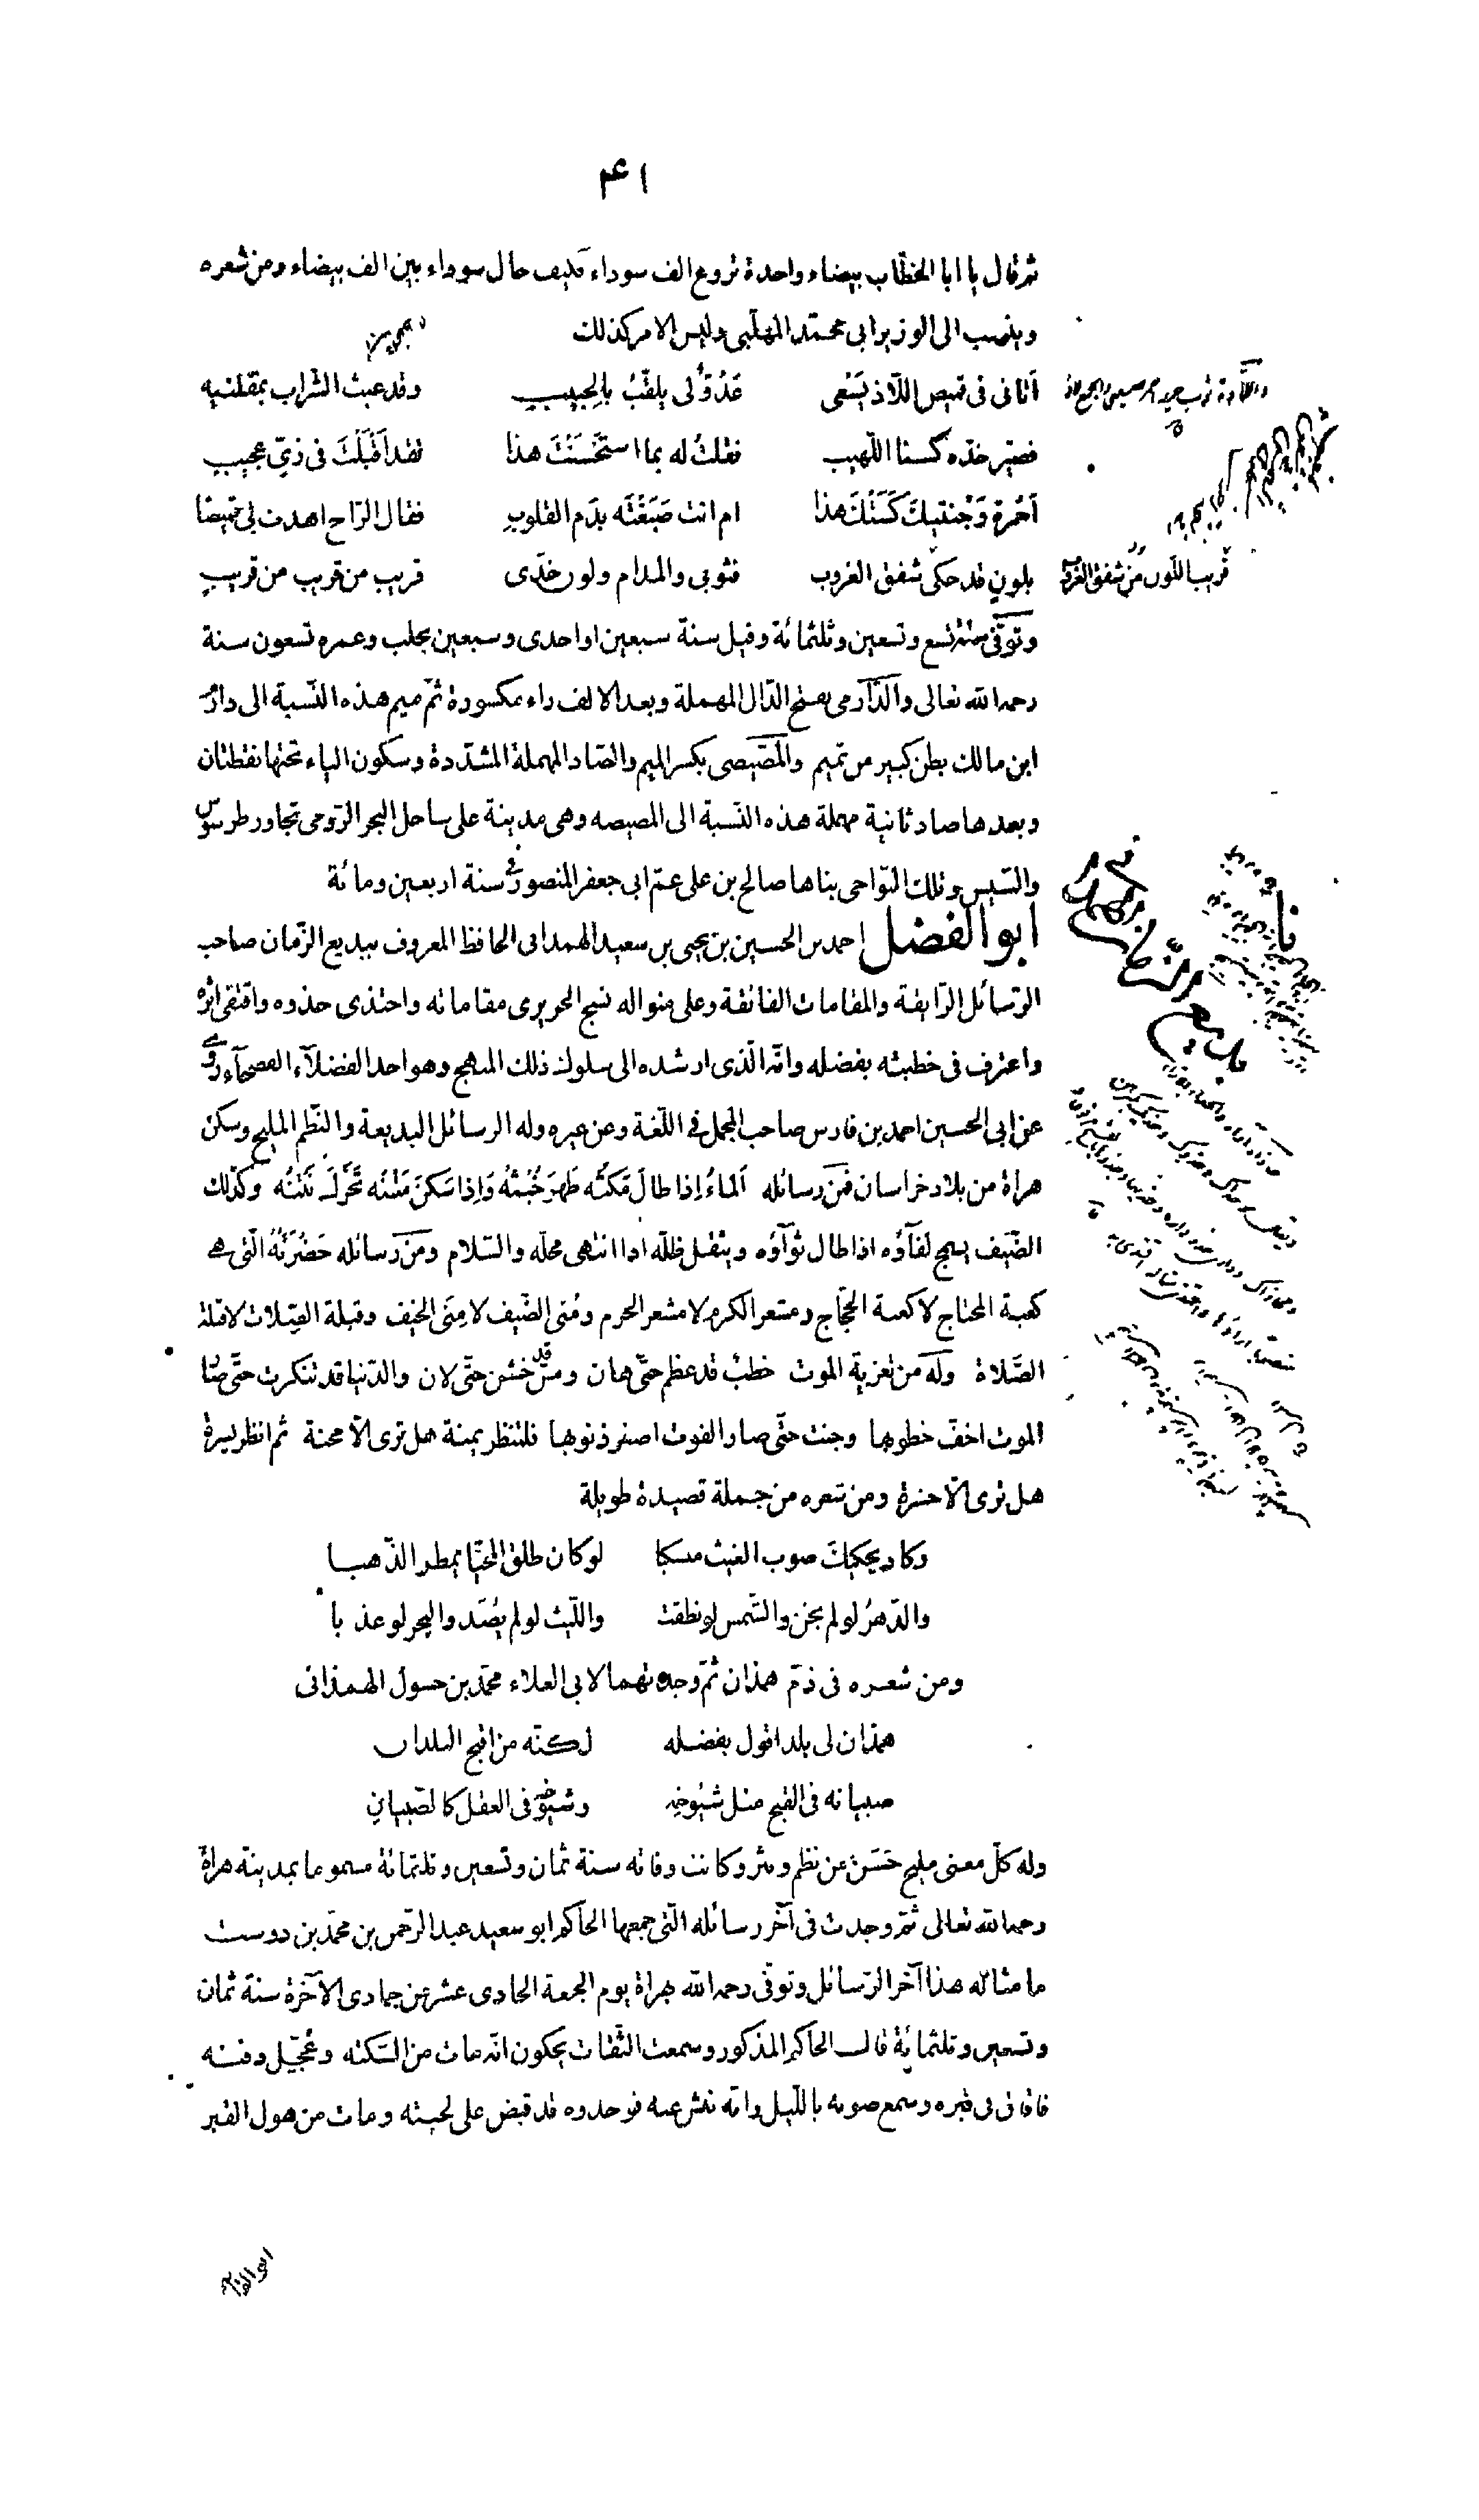 ٤١
ثم قال يا ابا الخطاب بيضاء واحدة تروع الف سوداء فكيف حال سوداء بين الف بيضاء ومن شعره
وينسب الى الوزير ابى محمد المهلبى وليس الامر كذلك
اتانى فى قميص اللاذ يسعى عدوٌّ لى يلقّبُ بالحبيب وقد عبث الشراب بمقلتيه
فصيّر خدّه كسنا اللهيب فقلتُ له بما استحسَنْتَ هذا فقد اَقْبَلْتَ فى زىّ عجيب
اَحُمرة وَجْنتيك كَسَتْكَ هذا ام انت صَبَغْتَه بدَم القلوبِ فقال الرّاح اهدت لى قميصًا
بلونٍ قد حكى شفق الغروب فثوبى والمدام ولون خدّى قريب من قريب من قريبِ
قريب اللون من شفق الغروب
وتوفّى سنة تسع وتسعين وثلثمائة وقيل سنة سبعين او احدى وسبعين بحلب وعمره تسعون سنة
رحمه الله تعالى والدّارمى بفتح الدّال المهملة وبعد الالف راء مكسورة ثمّ ميم هذه النّسبة الى دارم
ابن مالك بطن كبير من تميم والمصّيصى بكسر الميم والصّاد المهملة المشدّدة وسكون الياء تحتها نقطتان
وبعدها صاد ثانية مهملة هذه النّسبة الى المصيصه وهى مدينة على ساحل البحر الرّومى تجاور طرسوس
والسّيس وتلك النّواحى بناها صالح بن على عمّ ابى جعفر المنصور فى سنة اربعين ومائة
ابو الفضل احمد بن الحسين بن يحيى بن سعيد الهمدانى الحافظ المعروف ببديع الزّمان صاحب
بديع الزمان الهمدانى
الرّسائل الرّايقة والمقامات الفائقة وعلى منواله نسج الحريرى مقاماته واحتذى حذوه واقتفى اثره
واعترف فى خطبته بفضله وانّه الّذى ارشده الى سلوك ذلك المنهج وهو احد الفضلآء الفصحآء روى
عن ابى الحسين احمد بن فارس صاحب المجمل فى اللّغة وعن غيره وله الرسائل البديعة والنّظم المليح وسكن
هراة من بلاد خراسان فمن رسائله اَلماءُ اِذا طالَ مَكثُه ظَهَرَ خُبْثُهُ وَاِذا سَكَنَ مَتْنُه تَحَرّكَ نَتْنُه وكذلك
الضّيف يسمج لقآؤه اذا طال ثوآؤه ويثقل ظلّه اذا انتهى محلّه والسّلام ومن رسائله حَضْرَتُهُ الّتى هى
كعبة المحتاج لا كعبة الحجّاج ومشعر الكرم لا مشعر الحرم ومُنى الضّيف لا مِنَى الخيف وقبلة الصِّلات لا قبلة
الصَّلاة وله من تعزية الموت خطبٌ قد عظم حتّى هان ومسٌّ قد خشن حتّى لان والدّنيا قد تنكّرت حتّى صار
الموت اخفّ خطوبها وجنت حتّى صار الفوت اصغر ذنوبها فلتنظر يمنة هل ترى الّا محنة ثم انظر يسرة
هل ترى الّا حسرة ومن شعره من جملة قصيدة طويلة
وكاد يحكيك صوب الغيث منسكبا لو كان طلق المحيّا يمطر الذّهبا
والدّهرُ لو لم يخن والشّمس لو نطقت واللّيث لو لم يُصَد والبحر لو عذبا
ومن شعره فى ذمّ همذان ثمّ وجدتهما لابى العلاء محمّد بن حسول الهمذانى
همذان لى بلد اقول بفضله لكنّه من اقبح البلدان
صبيانه فى القبح مثل شيوخه وشيوخه فى العقل كالصّبيانِ
وله كلّ معنى مليح حَسَن من نظم ونثر وكانت وفاته سنة ثمان وتسعين وثلثمائة مسموما بمدينة هراة
رحمه الله تعالى ثمّ وجدت فى آخر رسائله الّتى جمعها الحاكم ابو سعيد عبد الرّحمن بن محمّد بن دوست
ما مثاله هذا آخر الرّسائل وتوفّى رحمه الله بهراة يوم الجمعة الحادى عشر من جمادى الآخرة سنة ثمان
وتسعين وثلثمائة قال الحاكم المذكور وسمعت الثّقات يحكون انّه مات من السّكته وعُجّل دفنه
فافاق فى قبره وسمع صوته باللّيل وانّه نبش عنه فوجدوه قد قبض على لحيته ومات من هول القبر